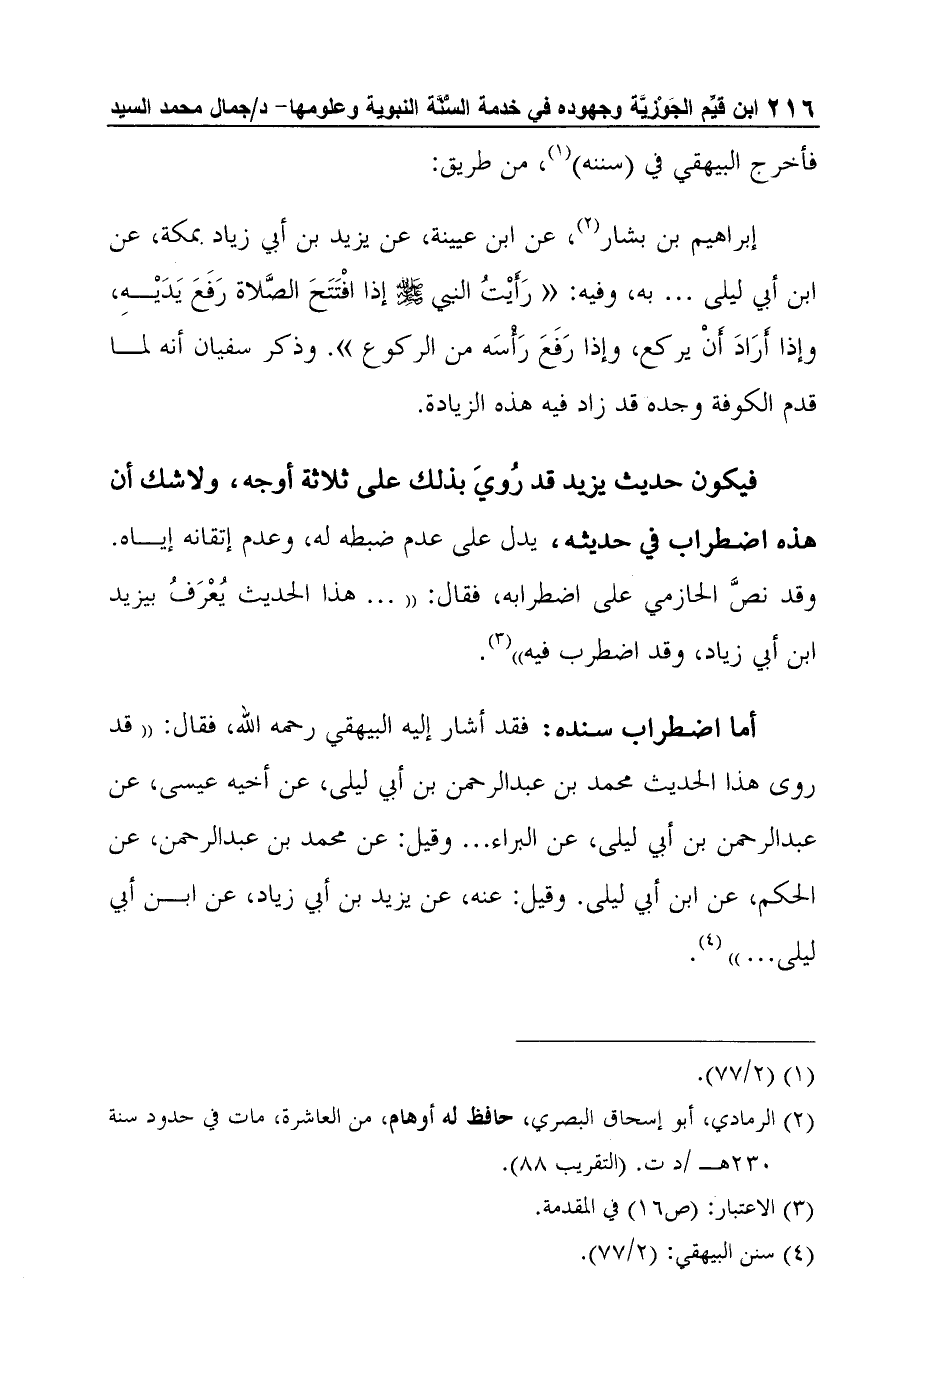 ٢١٦ ابن قيِّم الجَوْزيَّة وجهوده في خدمة السنَّة النبوية وعلومها- د/جمال محمد السيد
فأخرج البيهقي في (سننه)(١)، من طريق:
إبراهيم بن بشار(٢)، عن ابن عيينة، عن يزيد بن أبي زياد بمكة، عن
ابن أبي ليلى ... به، وفيه: « رَأَيْتُ النبي ﷺ إذا افْتَتَحَ الصَّلاة رَفَعَ يَدَيْـــهِ،
وإذا أَرَادَ أَنْ يركع، وإذا رَفَعَ رَأْسَه من الركوع ». وذكر سفيان أنه لمـــا
قدم الكوفة وجده قد زاد فيه هذه الزيادة.
فيكون حديث يزيد قد رُويَ بذلك على ثلاثة أوجه، ولاشك أن
هذه اضطراب في حديثه، يدل على عدم ضبطه له، وعدم إتقانه إيـــاه.
وقد نصَّ الحازمي على اضطرابه، فقال: (( ... هذا الحديث يُعْرَفُ بيزيد
ابن أبي زياد، وقد اضطرب فيه))(٣).
أما اضطراب سنده: فقد أشار إليه البيهقي رحمه الله، فقال: (( قد
روى هذا الحديث محمد بن عبدالرحمن بن أبي ليلى، عن أخيه عيسى، عن
عبدالرحمن بن أبي ليلى، عن البراء... وقيل: عن محمد بن عبدالرحمن، عن
الحكم، عن ابن أبي ليلى. وقيل: عنه، عن يزيد بن أبي زياد، عن ابـــن أبي
ليلى... )) (٤).
(١) (٧٧/٢).
(٢) الرمادي، أبو إسحاق البصري، حافظ له أوهام، من العاشرة، مات في حدود سنة
٢٣٠هـــ /د ت. (التقريب ٨٨).
(٣) الاعتبار: (ص١٦) في المقدمة.
(٤) سنن البيهقي: (٧٧/٢).